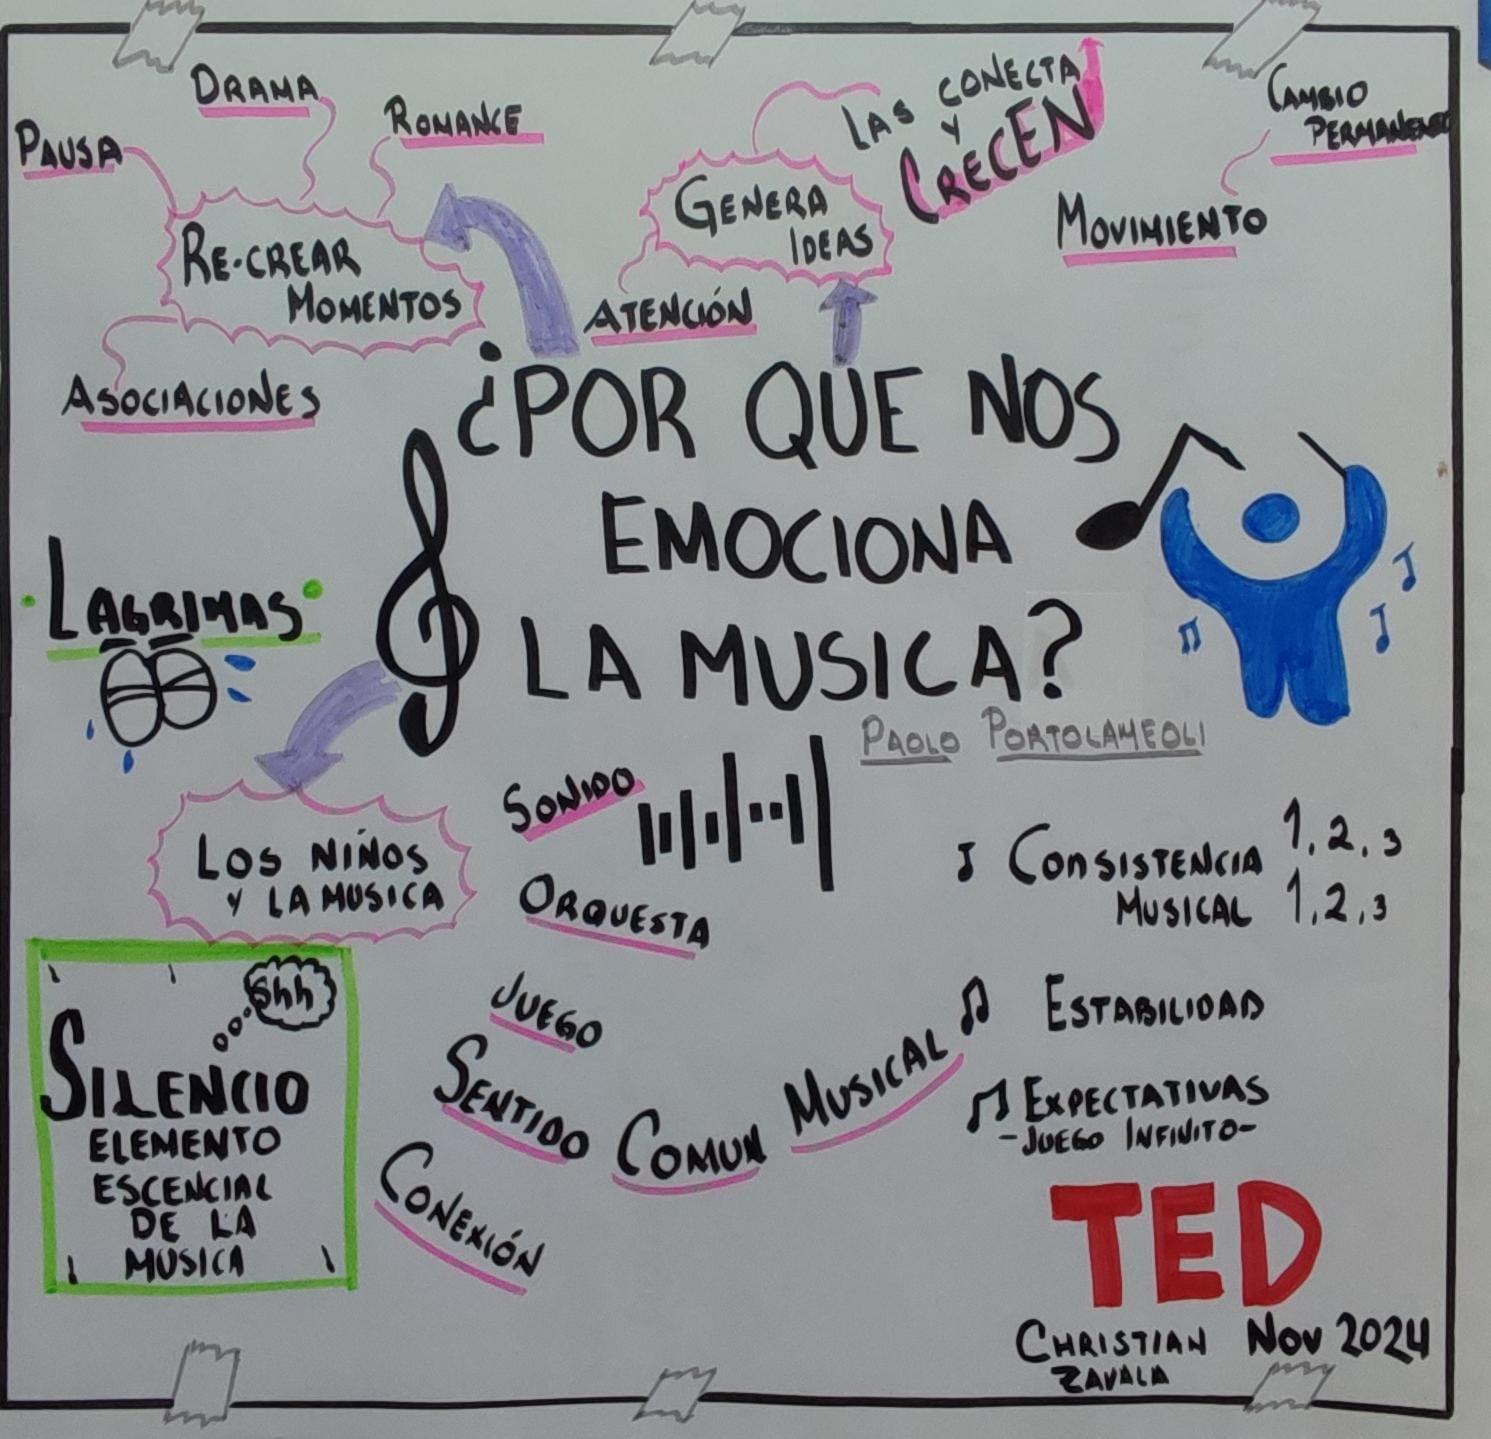 DRAMA
PAUSA
ROMANCE
RE-CREAR
MOMENTOS
ASOCIACIONES
LAS CONECTA
Y
CRECEN
GENERA
IDEAS
ATENCIÓN
CAMBIO
PERMANENTE
MOVIMIENTO
¿POR QUE NOS
EMOCIONA
LA MUSICA?
PAOLO PORTOLAMEOLI
LAGRIMAS
LOS NIÑOS
Y LA MUSICA
Shh
SILENCIO
ELEMENTO
ESCENCIAL
DE LA
MUSICA
SONIDO
ORQUESTA
JUEGO
SENTIDO COMUN MUSICAL
CONEXIÓN
CONSISTENCIA 1, 2, 3
MUSICAL 1, 2, 3
ESTABILIDAD
EXPECTATIVAS
-JUEGO INFINITO-
TED
CHRISTIAN NOV 2024
ZAVALA